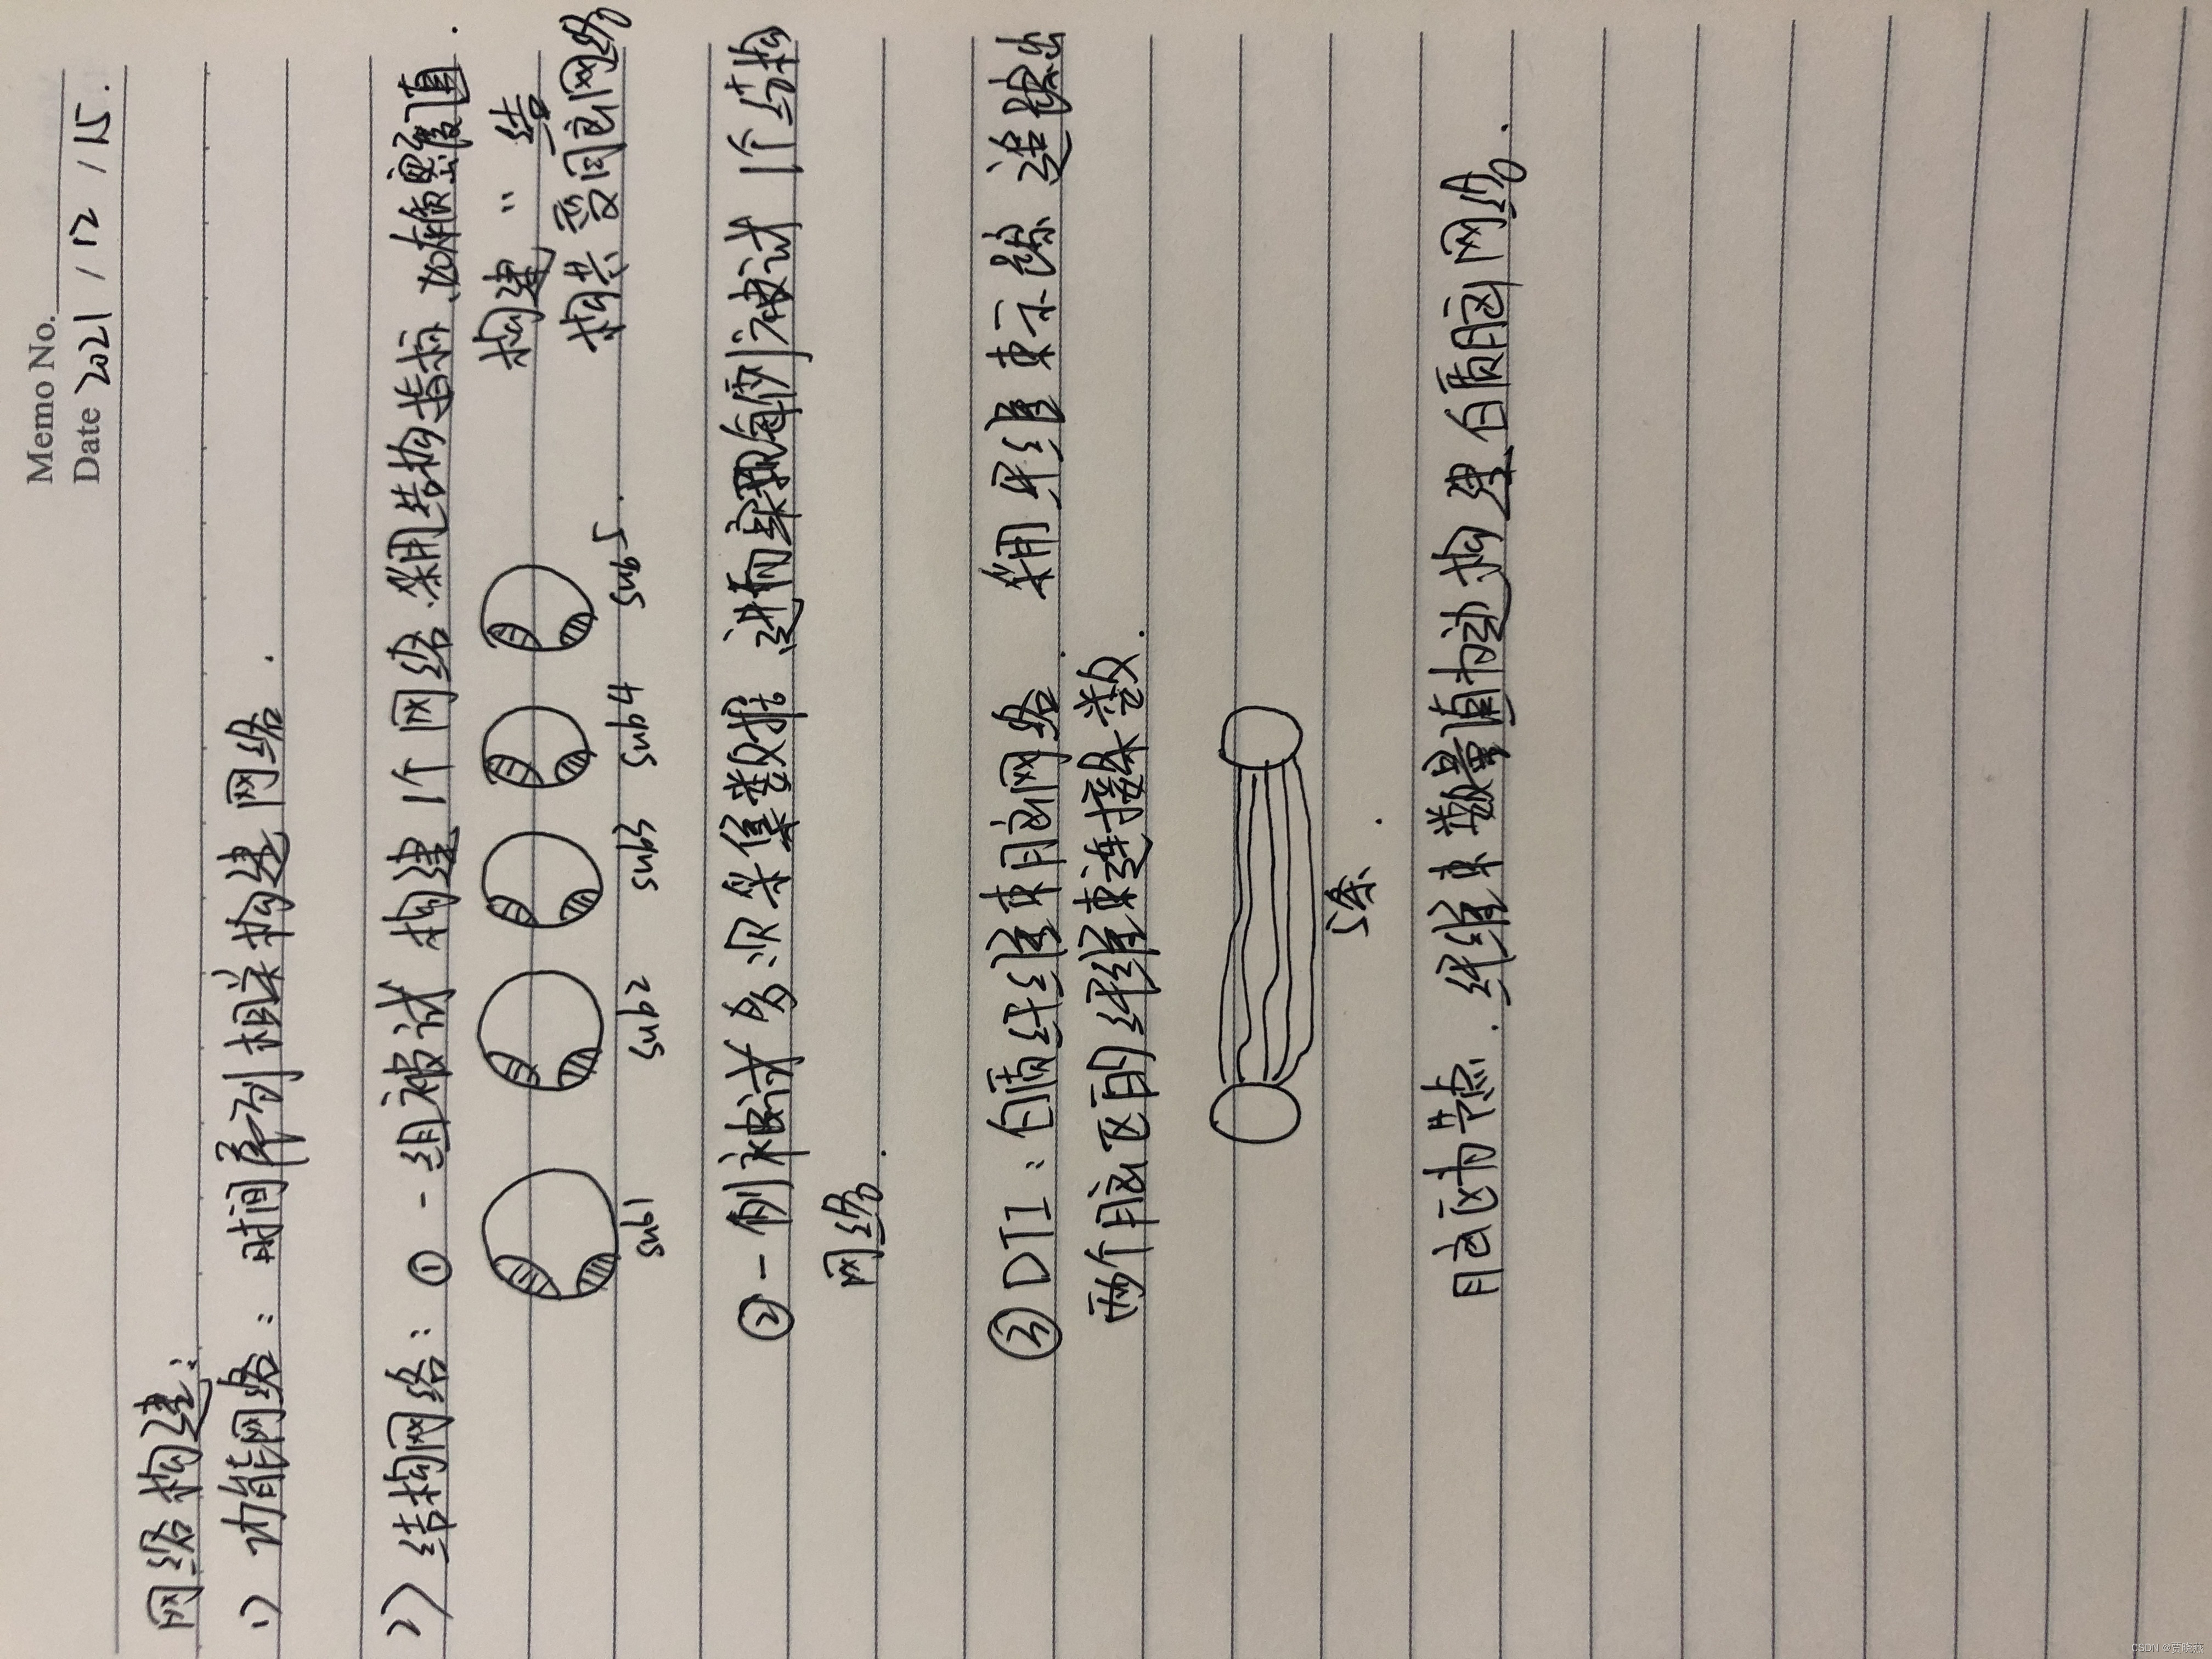 Memo No.
Date 2021 / 12 / 15 .
网络构建:
1) 功能网络: 时间序列相关构建网络.
2) 结构网络: ① 一组被试 构建 1个网络. 采用结构指标,如灰质密度值.
构建 " 结
构共变同脑网络
sub1 sub2 sub3 sub4 sub5 .
② 一例被试 多次采集数据 进而采取每例被试 1个结构
网络.
③ DTI: 白质纤维束脑网络. 采用纤维束示踪 追踪出
两个脑区的纤维束连接数.
5条.
脑区为节点. 纤维束数量值为边 构建白质脑网络.
CSDN @贾晓燕